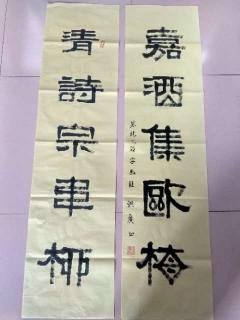 嘉酒集歐梅
清詩宗韋柳